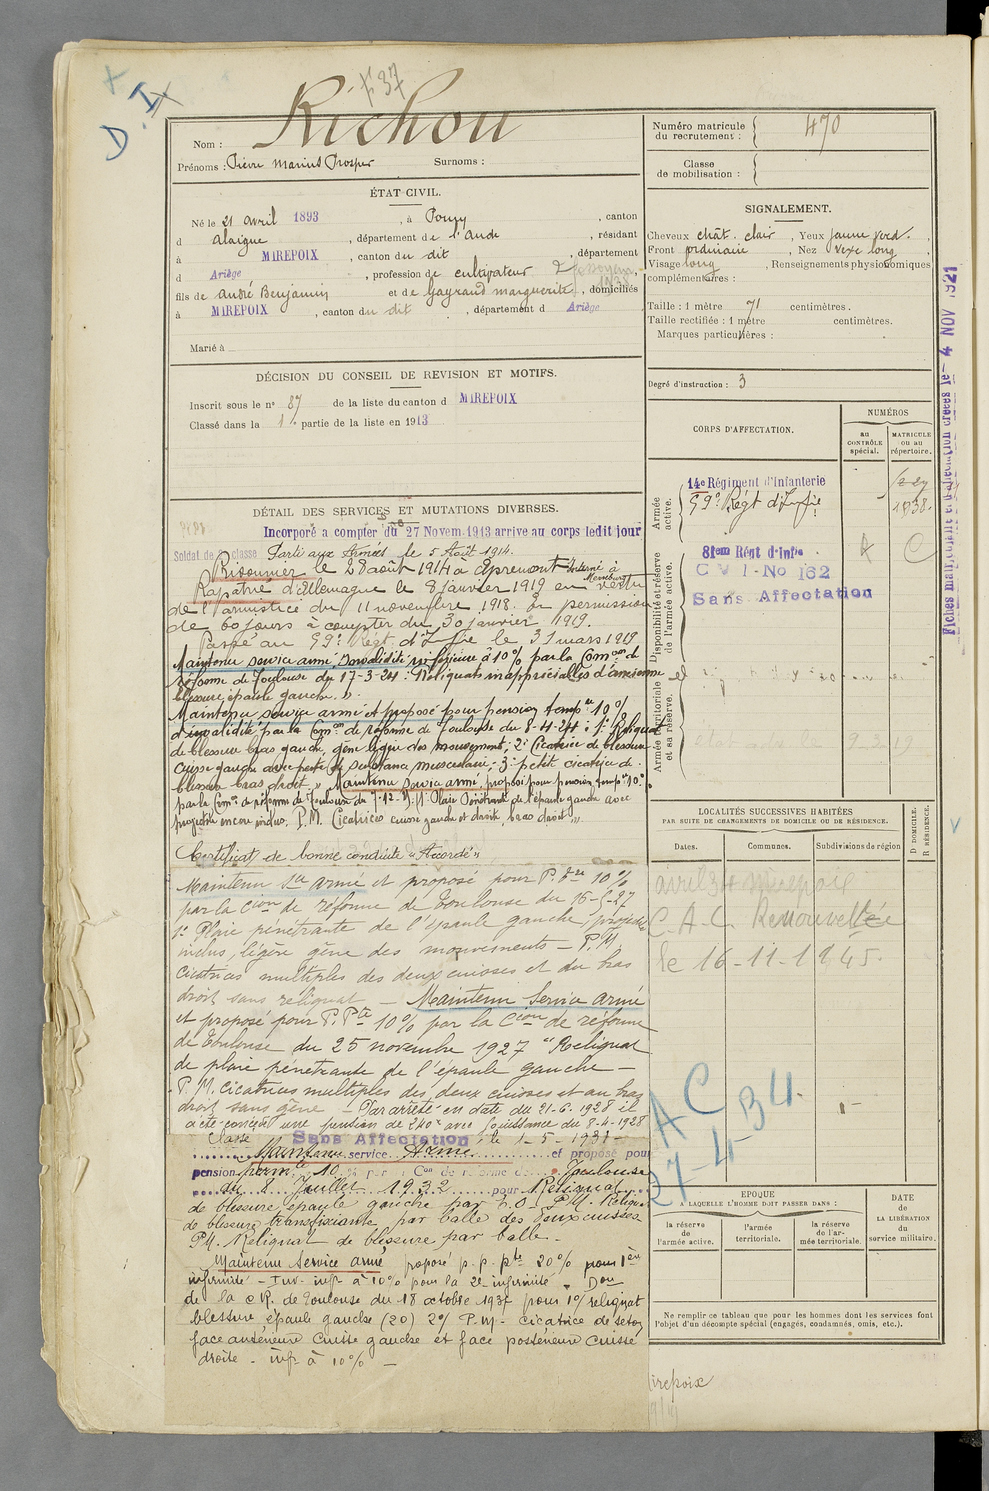 F 37
D I X
Richou
Nom :
Prénoms : Pierre Marius Prosper Surnoms :
ÉTAT CIVIL.
Né le 21 avril 1893, à Pomy, canton
d Alaigne, département de l'Aude, résidant
à MIREPOIX, canton du dit, département
d Ariège, profession de cultivateur
fils de André Benjamin et de Gayraud marguerite, domiciliés
à MIREPOIX, canton du dit, département d Ariège
Marié à
DÉCISION DU CONSEIL DE REVISION ET MOTIFS.
Inscrit sous le n° 87 de la liste du canton d MIREPOIX
Classé dans la 1e partie de la liste en 1913
DÉTAIL DES SERVICES ET MUTATIONS DIVERSES.
Incorporé a compter du 27 Novem. 1913 arrive au corps ledit jour
Soldat de classe Parti aux Armées le 5 Août 1914.
Prisonnier le 28 août 1914 à Apremont Interné à
Merseburg
Rapatrié d'Allemagne le 8 janvier 1919 en vertu
de l'armistice du 11 novembre 1918. En permission
de 60 jours à compter du 30 janvier 1919.
Passé au 59e Régt d'Infie le 31 mars 1919
Maintenu service armé, Invalidité inférieure à 10% par la Comon de
réforme de Toulouse du 17-3-21 : Reliquats inappréciables d'ancienne
blessure épaule gauche. »
Maintenu service armé et proposé pour pension tempre 10%
d'invalidité par la Comon de réforme de Toulouse du 8-4-24 : 1° Reliquat
de blessure bras gauche, gêne légère des mouvements; 2° Cicatrice de blessure
cuisse gauche avec perte de substance musculaire; 3° petit cicatrice de
blessure bras droit. » Maintenu service armé, proposé pour pension temp re 10%
par la Com on de réforme de Toulouse du 7-12- 1° Plaie Pénétrante de l'épaule gauche avec
projectile encore inclus. P.M. Cicatrices cuisse gauche et droite, bras droit »
Certificat de bonne conduite "Accordé"
Maintenu Sce armé et proposé pour P. 10%
par la Cion de réforme de Toulouse du 16-6-27
1° Plaie pénétrante de l'épaule gauche, projectile
inclus, légère gêne des mouvements – P.M.
cicatrices multiples des deux cuisses et du bras
droit sans reliquat – Maintenu Service armé
et proposé pour P. Pte 10% par la Cion de réforme
de Toulouse du 25 novembre 1927 "Reliquat
de plaie pénétrante de l'épaule gauche –
P.M. Cicatrices multiples des deux cuisses et au bras
droit sans gêne – Par arrêté en date du 21-6-1928 il
a été concédé une pension de 240 avec jouissance du 8-4-1928
Classé Sans Affectation, le 1-5-1931-
Maintenu service Armé et proposé pour
pension perm te 10 % par la Con de réforme de Toulouse
du 8 Juillet 1932 pour Reliquat
de blessure épaule gauche par E.O – P.M. Reliquat
de blessure transfixiante par balle des deux cuisses
P.M. Reliquat de blessure par balle –
Maintenu Service armé proposé p. p. pte 20% pour 1ère
infirmité – Inv. infr à 10% pour la 2e infirmité. Don
de la C.R. de Toulouse du 18 octobre 1937 pour 1°/ reliquat
blessure épaule gauche (20) 2°/ P.M. cicatrice de séton
face antérieure cuisse gauche et face postérieure cuisse
droite – infr à 10% –
Numéro matricule
du recrutement : 470
Classe
de mobilisation :
SIGNALEMENT.
Cheveux chât. clair, Yeux jaune verd.,
Front ordinaire, Nez vexe long,
Visage long, Renseignements physionomiques
complémentaires :
Taille : 1 mètre 71 centimètres.
Taille rectifiée : 1 mètre centimètres.
Marques particulières :
Degré d'instruction : 3
CORPS D'AFFECTATION.
NUMÉROS
au
CONTRÔLE
spécial.
MATRICULE
OU au
répertoire.
Armée
active.
14e Régiment d'Infanterie
59e Régt d'Infie
1838
Disponibilité et réserve
de l'armée active.
81em Rént d'Infie
C V 1-No 162
Sans Affectation
A C
Armée territoriale
et sa réserve.
LOCALITÉS SUCCESSIVES HABITÉES
PAR SUITE DE CHANGEMENTS DE DOMICILE OU DE RÉSIDENCE.
Dates.
Communes.
Subdivisions de région
D DOMICILE.
R RÉSIDENCE.
avril 34 Mirepoix
C.A.C. Renouvelée
le 16-11-1945.
A C
27-4-34.
EPOQUE
A LAQUELLE L'HOMME DOIT PASSER DANS :
la réserve
de
l'armée active.
l'armée
territoriale.
la réserve
de l'ar-
mée territoriale.
DATE
de
LA LIBÉRATION
du
service militaire.
Ne remplir ce tableau que pour les hommes dont les services font
l'objet d'un décompte spécial (engagés, condamnés, omis, etc.).
irepoix
Fiches matricule créées le 4 NOV 1921